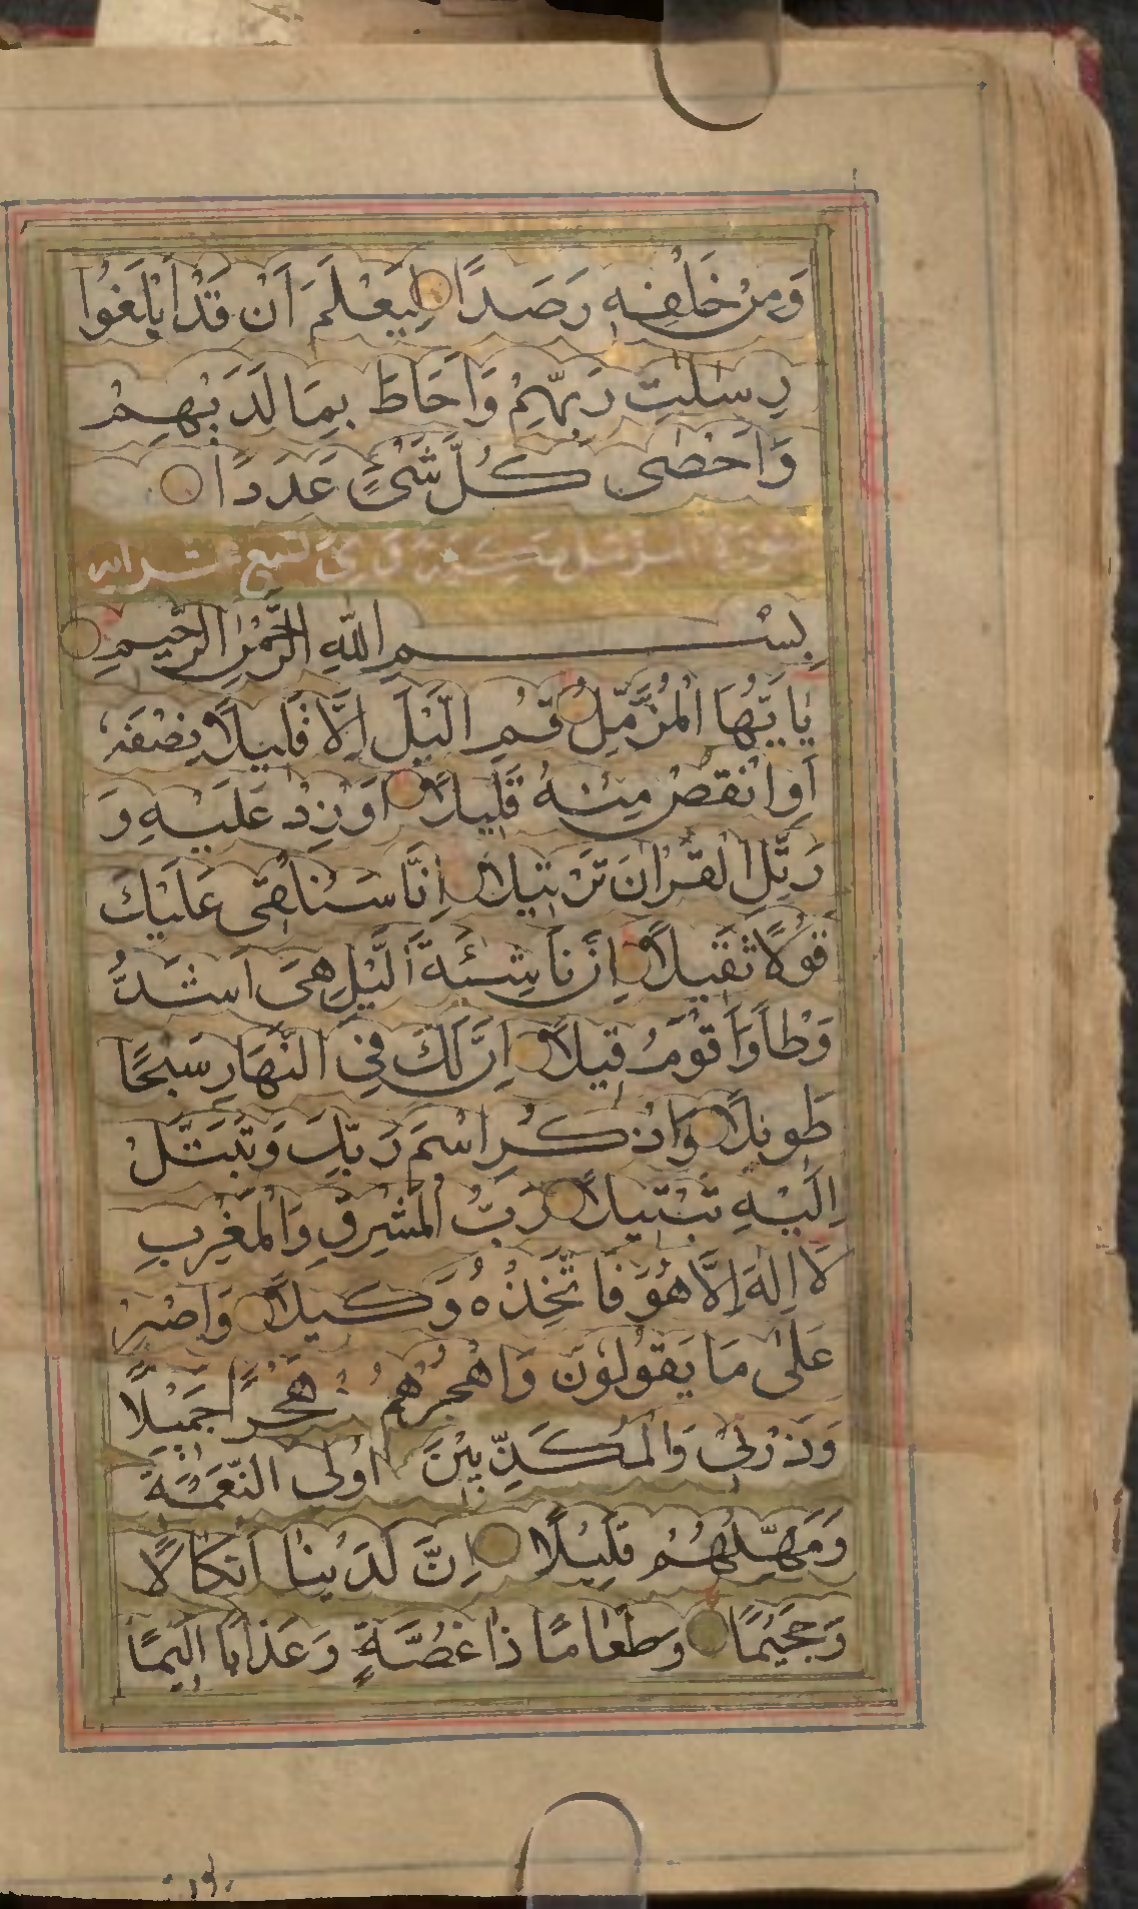 وَمِنْ خَلْفِهٖ رَصَدًا لِيَعْلَمَ اَنْ قَدْ اَبْلَغُوا
رِسٰلٰتِ رَبِّهِمْ وَاَحَاطَ بِمَا لَدَيْهِمْ
وَاَحْصٰى كُلَّ شَیْءٍ عَدَدًا
سورة المزمل
بِسْمِ اللّٰهِ الرَّحْمٰنِ الرَّحِيمِ
يٰاَيُّهَا الْمُزَّمِّلُ قُمِ الَّيْلَ اِلَّا قَلِيلًا نِصْفَهٗ
اَوِ انْقُصْ مِنْهُ قَلِيلًا اَوْ زِدْ عَلَيْهِ وَ
رَتِّلِ الْقُرْاٰنَ تَرْتِيلًا اِنَّا سَنُلْقِى عَلَيْكَ
قَوْلًا ثَقِيلًا اِنَّ نَاشِئَةَ الَّيْلِ هِىَ اَشَدُّ
وَطْاً وَاَقْوَمُ قِيلًا اِنَّ لَكَ فِى النَّهَارِ سَبْحًا
طَوِيلًا وَاذْكُرِ اسْمَ رَبِّكَ وَتَبَتَّلْ
اِلَيْهِ تَبْتِيلًا رَبُّ الْمَشْرِقِ وَالْمَغْرِبِ
لَا اِلٰهَ اِلَّا هُوَ فَاتَّخِذْهُ وَكِيلًا وَاصْبِرْ
عَلٰى مَا يَقُولُونَ وَاهْجُرْهُمْ هَجْرًا جَمِيْلًا
وَذَرْنِى وَالْمُكَذِّبِيْنَ اُولِى النَّعْمَةِ
وَمَهِّلْهُمْ قَلِيْلًا اِنَّ لَدَيْنَا اَنْكَالًا
وَجَحِيْمًا وَطَعَامًا ذَا غُصَّةٍ وَعَذَابًا اَلِيمًا